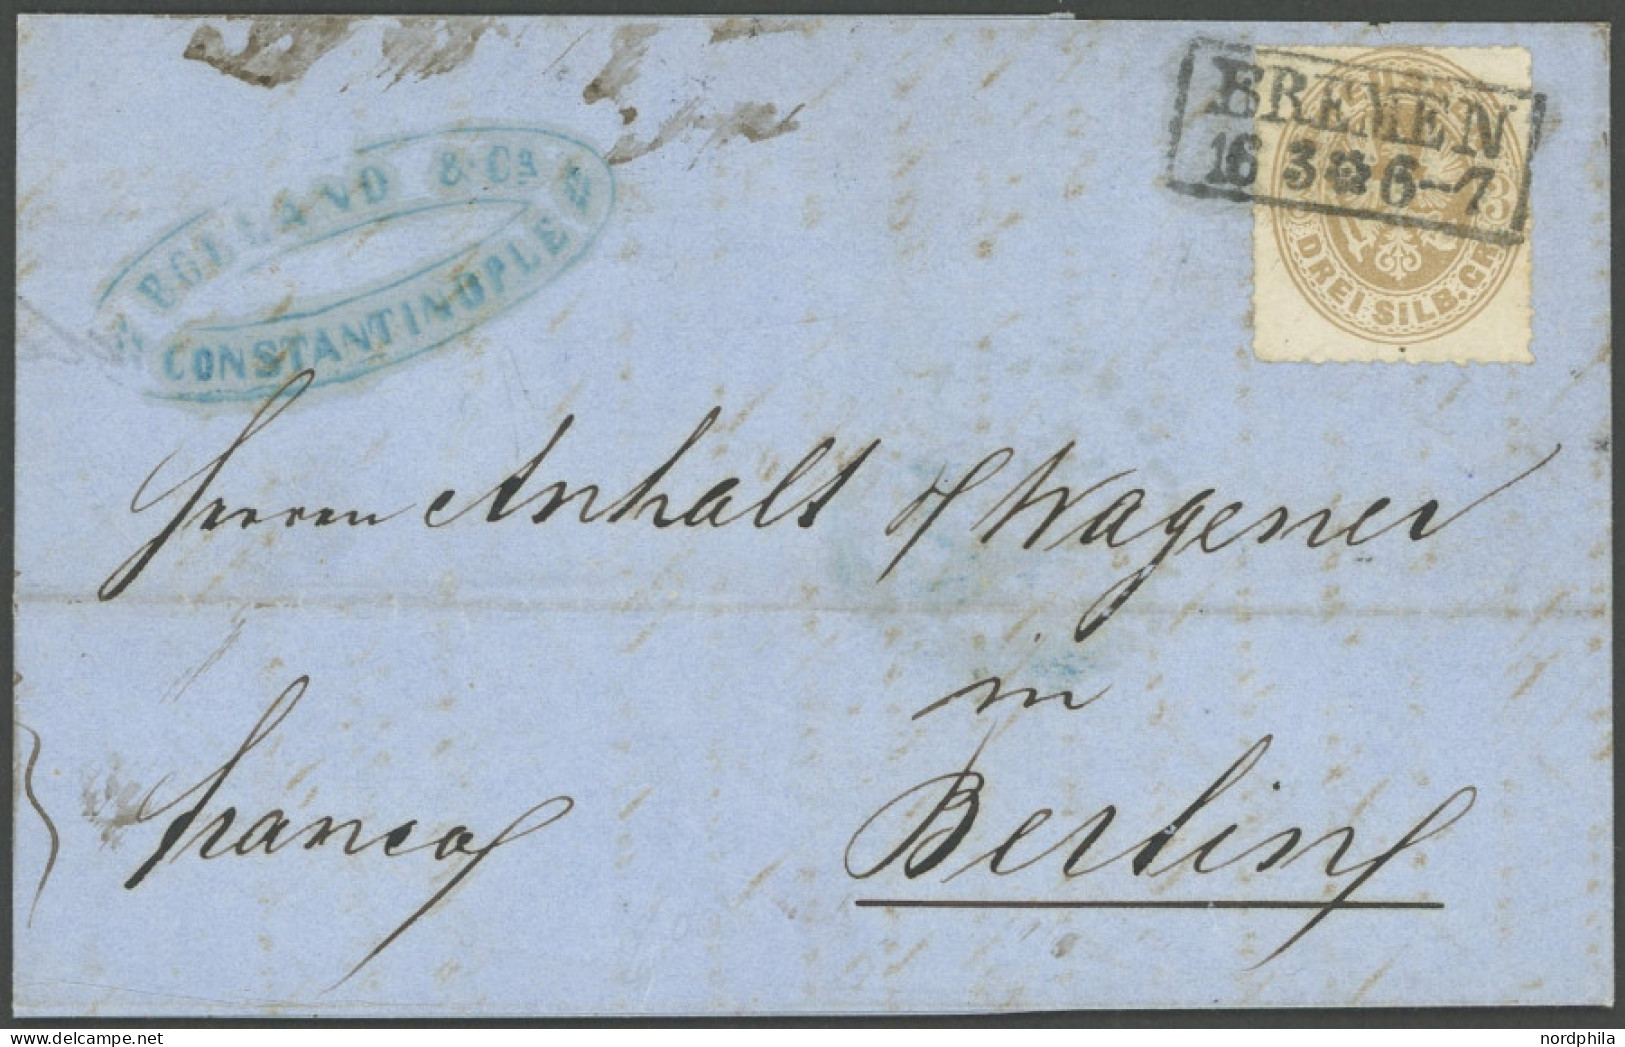 & Co
CONSTANTINOPLE
BREMEN
16 3 6-7
3
DREI SILB. GR.
Herren Anhalt & Wagener
in
franco
Berlin
www.delcampe.net
nordphila